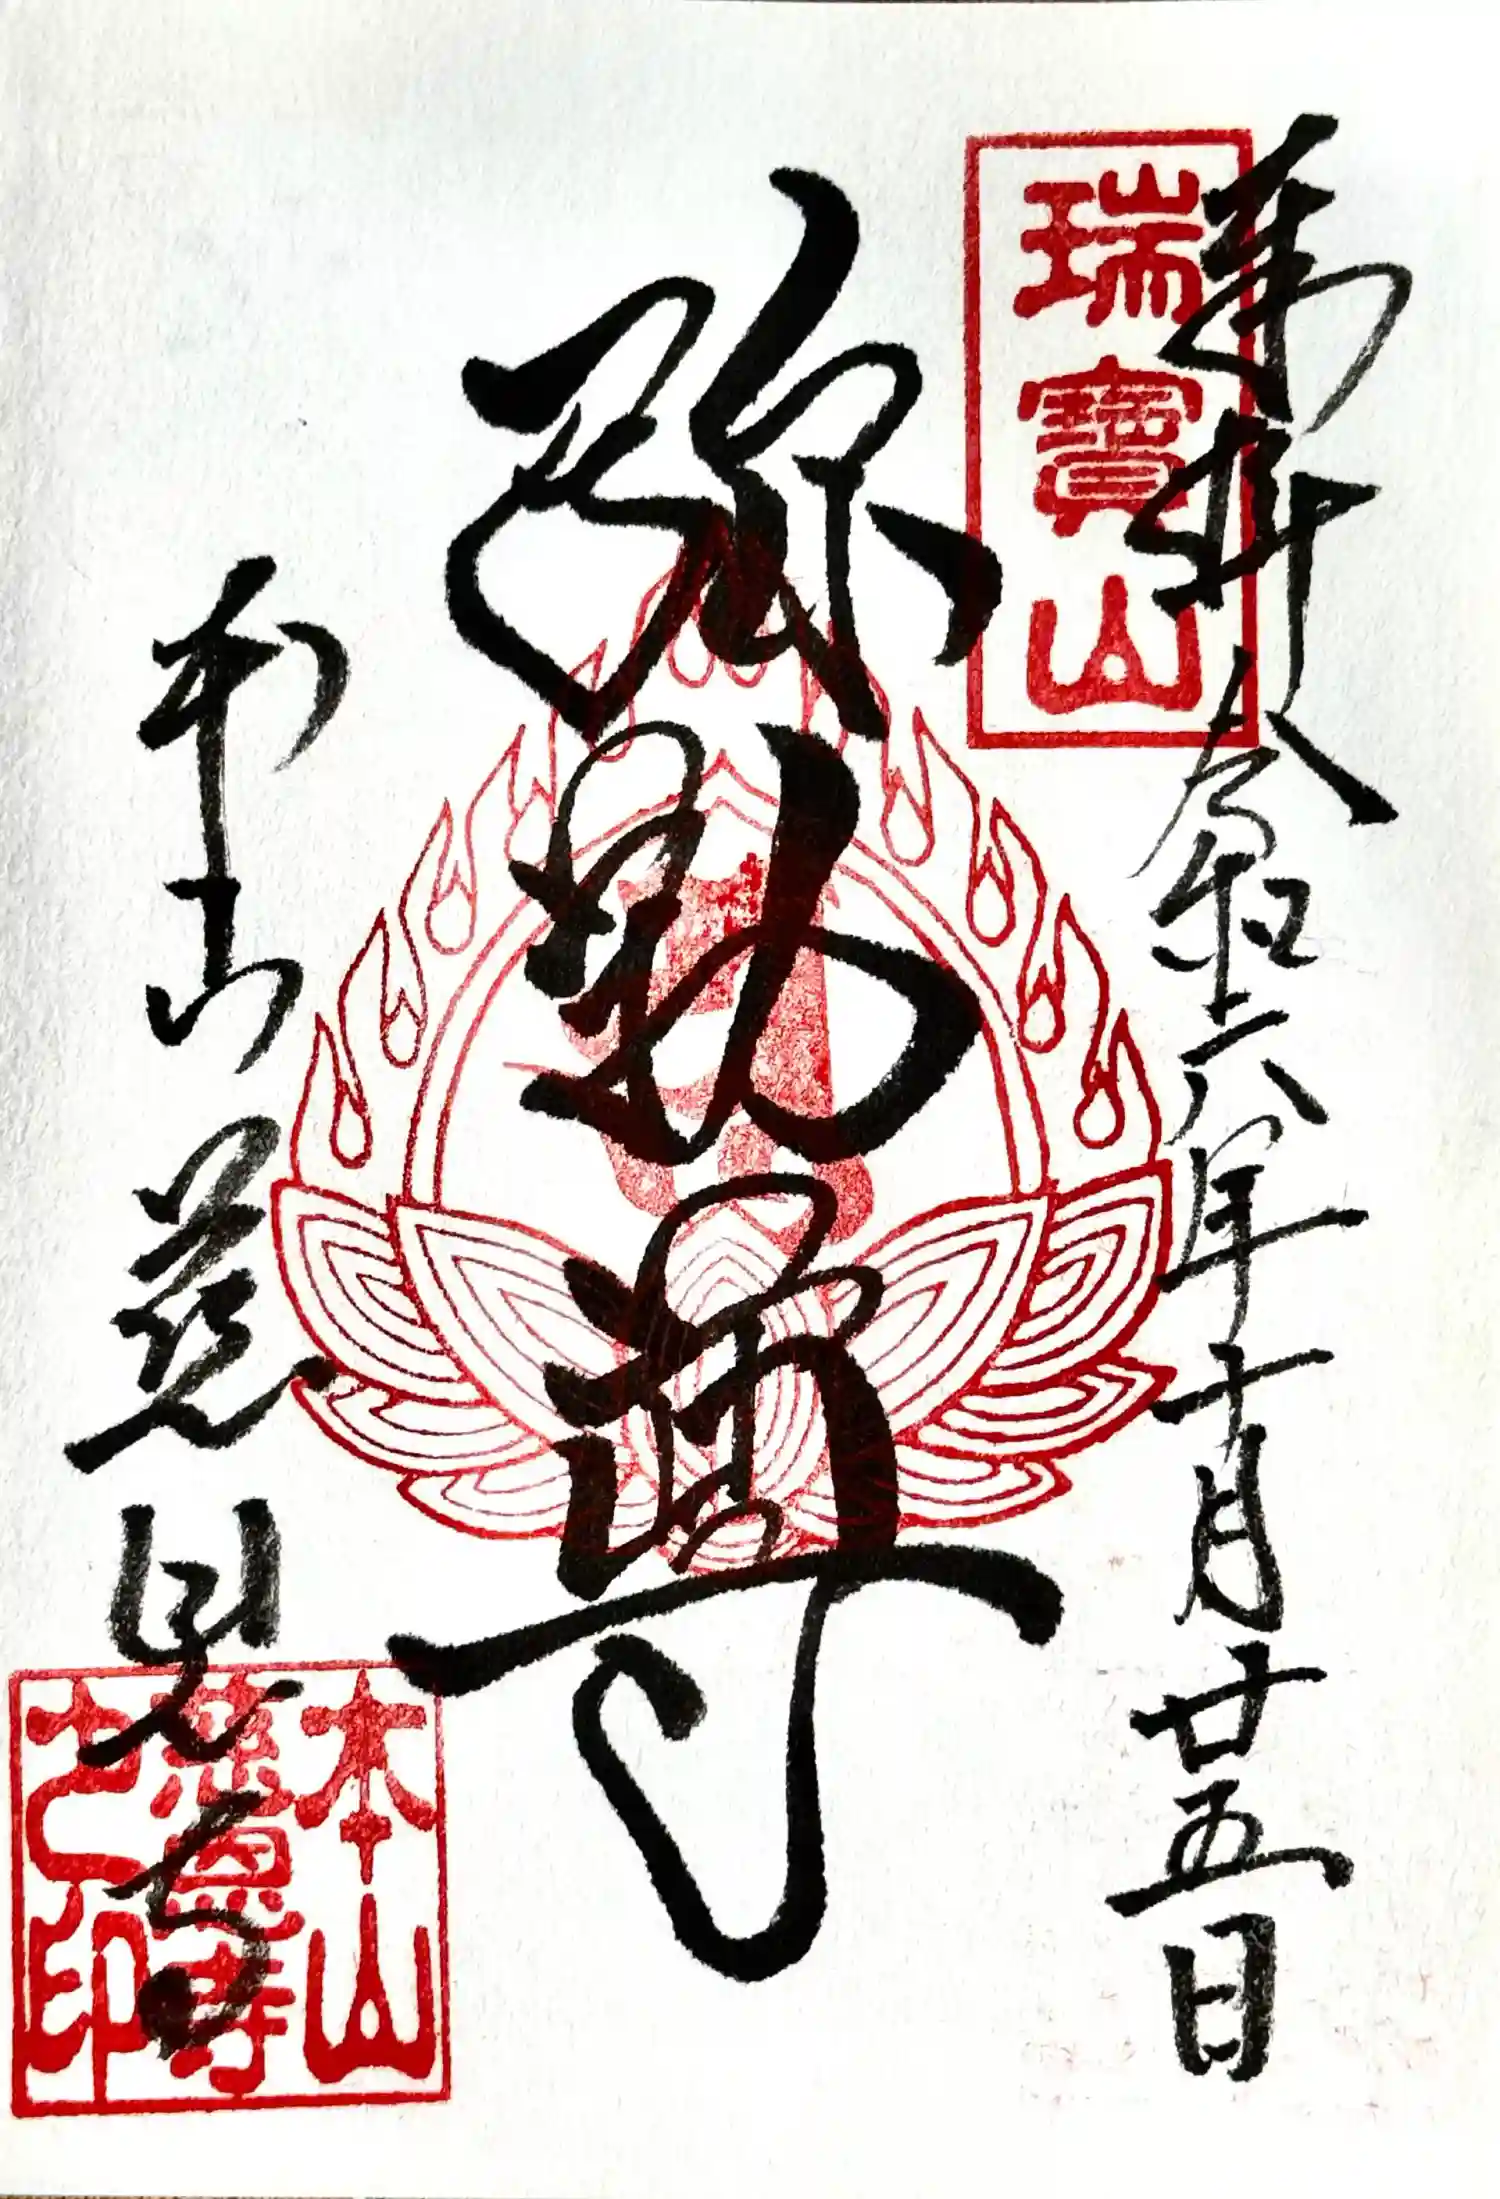 奉拝 令和六年十月廿五日
瑞寳山
弥勒尊
本山慈恩寺
本山
慈恩寺
之印